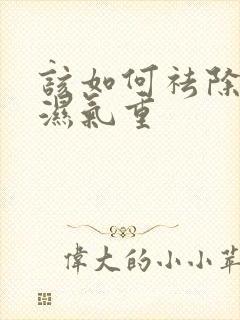 該如何祛除
濕氣重
偉大的小小草